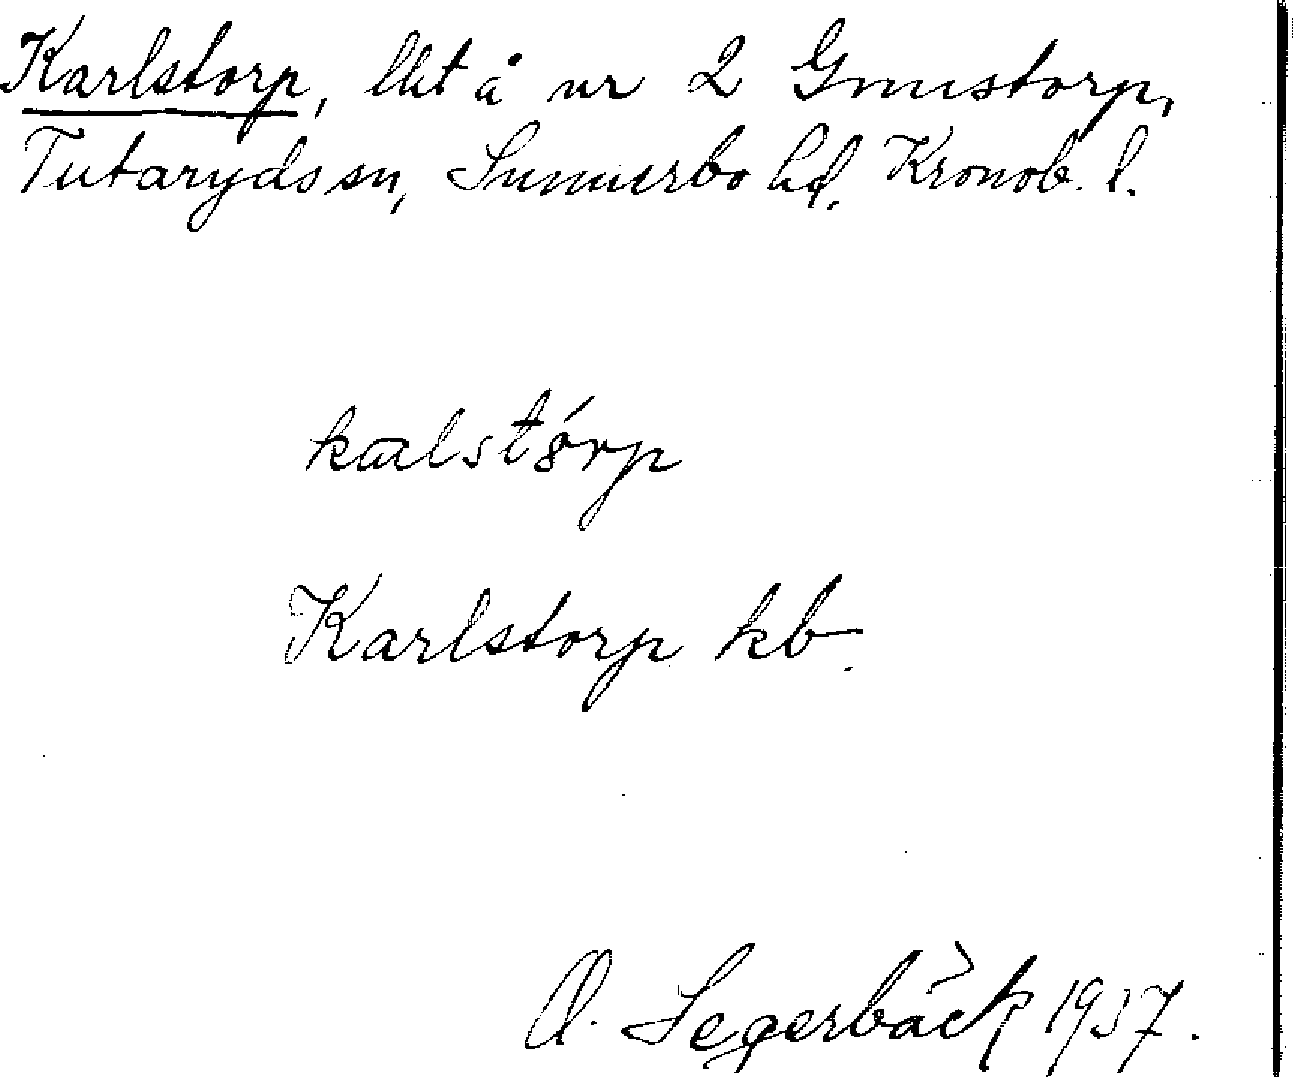 Karlstorp, lht å nr 2 Gnustorp,
Tutaryds sn, Sunnerbo hd, Kronob. l.
kalstórp
Karlstorp kb.
O. Segerbäck 1937.